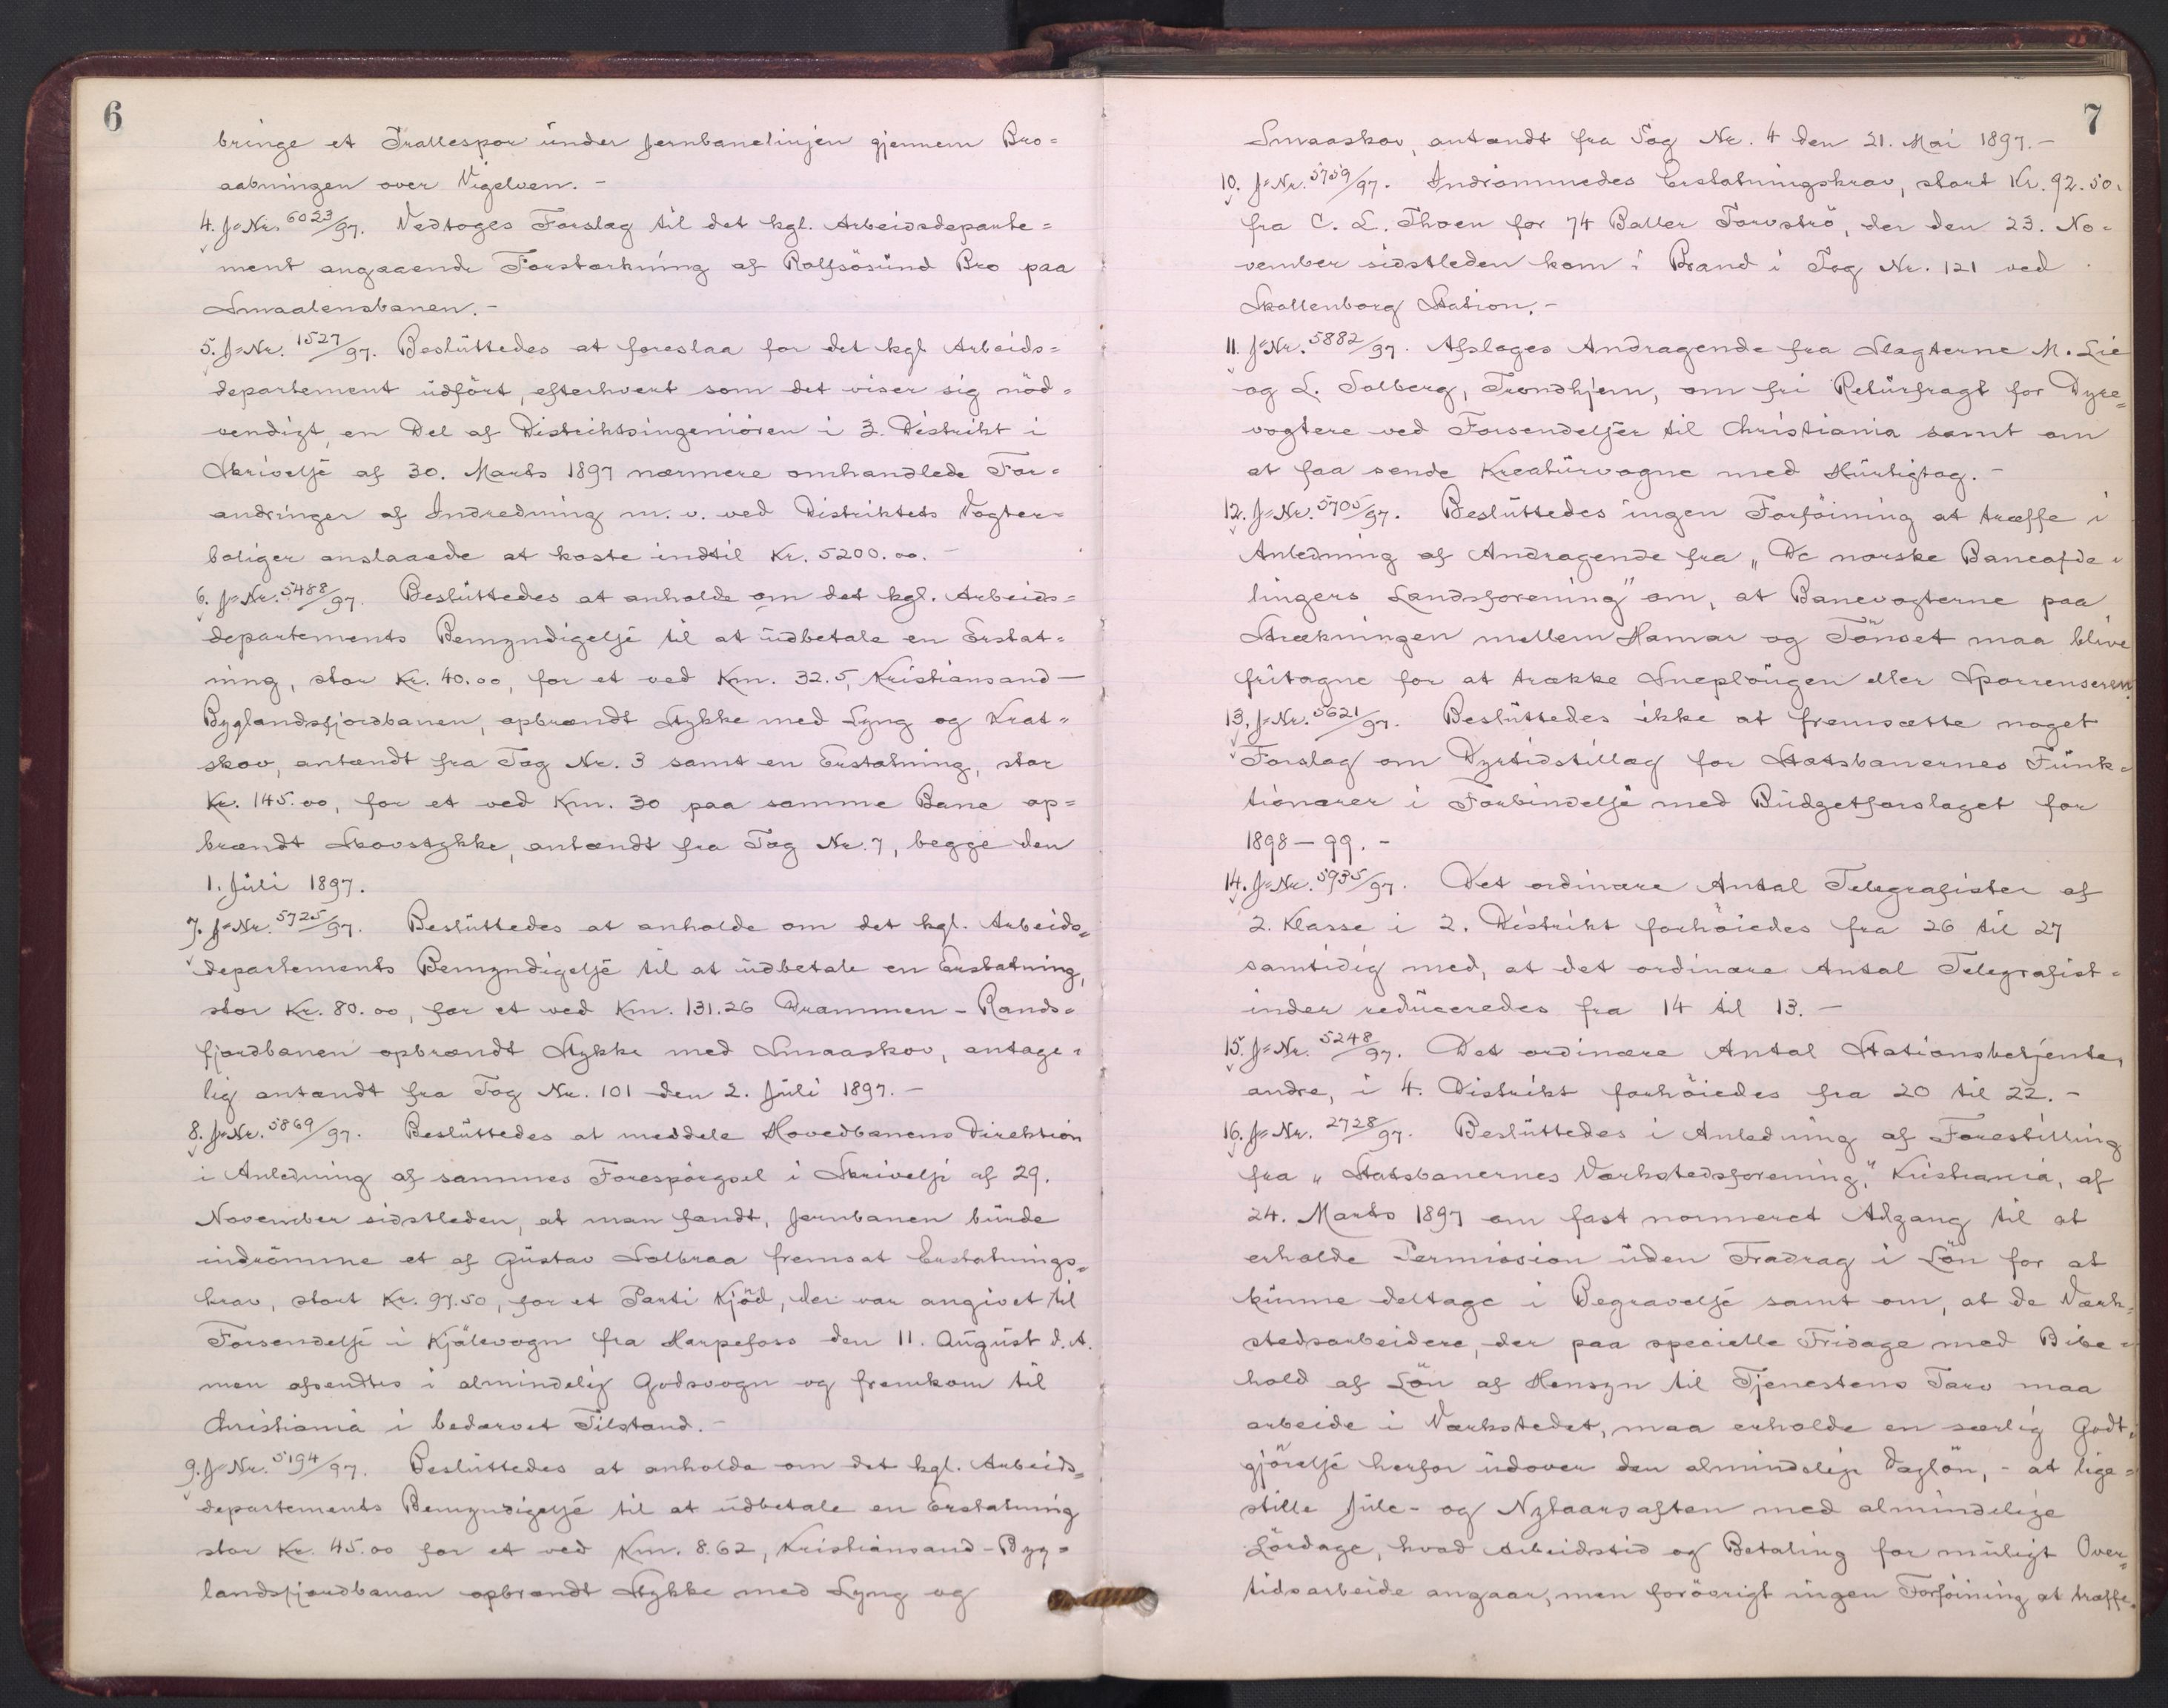 6
bringe et Trallespor under Jernbanelinjen gjennem Bro=
aabningen over Vigelven. -
4. J=Nr. 6023/97. Vedtoges Forslag til det kgl. Arbeidsdeparte=
ment angaaende Forstærkning af Rolfsösund Bro paa
Smaalensbanen. -
5. J=Nr. 1527/97. Besluttedes at foreslaa for det kgl Arbeids=
departement udfört, efterhvert som det viser sig nöd=
vendigt, en Del af Distriktsingeniören i 3. Distrikt i
Skrivelse af 30. Marts 1897 nærmere omhandlede For=
andringer af Indredning m. v. ved Distriktets Vogter=
boliger anslaaede at koste indtil Kr. 5200.00. -
6. J=Nr. 5488/97. Besluttedes at anholde om det kgl. Arbeids=
departements Bemyndigelse til at udbetale en Erstat=
ning, stor Kr. 40.00, for et ved Km. 32.5, Kristiansand —
Byglandsfjordbanen, opbrændt Stykke med Lyng og Krat=
skov, antændt fra Tog Nr. 3 samt en Erstatning, stor
Kr. 145.00, for et ved Km. 30 paa samme Bane op=
brændt Skovstykke, antændt fra Tog Nr. 7, begge den
1. Juli 1897.
7. J=Nr. 5725/97. Besluttedes at anholde om det kgl. Arbeids=
departements Bemyndigelse til at udbetale en Erstatning,
stor Kr. 80.00, for et ved Km. 131.26 Drammen - Rands=
fjordbanen opbrændt Stykke med Smaaskov, antage=
lig antændt fra Tog Nr. 101 den 2. Juli 1897. -
8. J=Nr. 5869/97. Besluttedes at meddele Hovedbanens Direktion
i Anledning af sammes Forespörgsel i Skrivelse af 29.
November sidstleden, at man fandt, Jernbanen burde
indrömme et af Gustav Solbraa fremsat Erstatnings=
krav, stort Kr. 97.50, for et Parti Kjöd, der var angivet til
Forsendelse i Kjölevogn fra Harpefoss den 11. August d. A.
men afsendtes i almindelig Godsvogn og fremkom til
Christiania i bedærvet Tilstand. -
9. J=Nr. 5194/97. Besluttedes at anholde om det kgl. Arbeids=
departements Bemyndigelse til at udbetale en Erstatning
stor Kr. 45.00 for et ved Km. 8.62, Kristiansand - Byg=
landsfjordbanen opbrændt Stykke med Lyng og
7
Smaaskov, antændt fra Tog Nr. 4 den 21. Mai 1897. -
10. J=Nr. 5759/97. Indrömmedes Erstatningskrav, stort Kr. 92.50.
fra C. L. Thoen for 74 Baller Torvströ, der den 23. No=
vember sidstleden kom i Brand i Tog Nr. 121 ved
Skollenborg Station. -
11. J=Nr. 5882/97. Afsloges Andragende fra Slagterne M. Lie
og L. Solberg, Trondhjem, om fri Returfragt for Dyre=
vogtere ved Forsendelser til Christiania samt om
at faa sende Kreaturvogne med Hurtigtog. -
12. J=Nr. 5705/97. Besluttedes ingen Forföining at træffe i
Anledning af Andragende fra „De norske Baneafde=
lingers Landsforening" om, at Banevogterne paa
Strækningen mellem Hamar og Tönset maa blive
fritagne for at trække Sneplougen eller Sporrenseren.
13. J=Nr. 5621/97. Besluttedes ikke at fremsætte noget
Forslag om Dyrtidstillæg for Statsbanernes Funk=
tionærer i Forbindelse med Budgetforslaget for
1898 — 99. -
14. J=Nr. 5935/97. Det ordinære Antal Telegrafister af
2. Klasse i 2. Distrikt forhöiedes fra 26 til 27
samtidig med, at det ordinære Antal Telegrafist=
inder reduceredes fra 14 til 13. —
15. J=Nr. 5248/97. Det ordinære Antal Stationsbetjente,
andre, i 4. Distrikt forhöiedes fra 20 til 22. -
16. J=Nr. 2728/97. Besluttedes i Anledning af Forestilling
fra „Statsbanernes Værkstedsforening", Kristiania, af
24. Marts 1897 om fast normeret Adgang til at
erholde Permission uden Fradrag i Lön for at
kunne deltage i Begravelse samt om, at de Værk=
stedsarbeidere, der paa specielle Fridage med Bibe=
hold af Lön af Hensyn til Tjenestens Tarv maa
arbeide i Værkstedet, maa erholde en særlig Godt=
gjörelse herfor udover den almindelige Daglön, - at lige=
stille Jule- og Nytaarsaften med almindelige
Lördage, hvad Arbeidstid og Betaling for muligt Over=
tidsarbeide angaar, men forövrigt ingen Forföining at træffe.